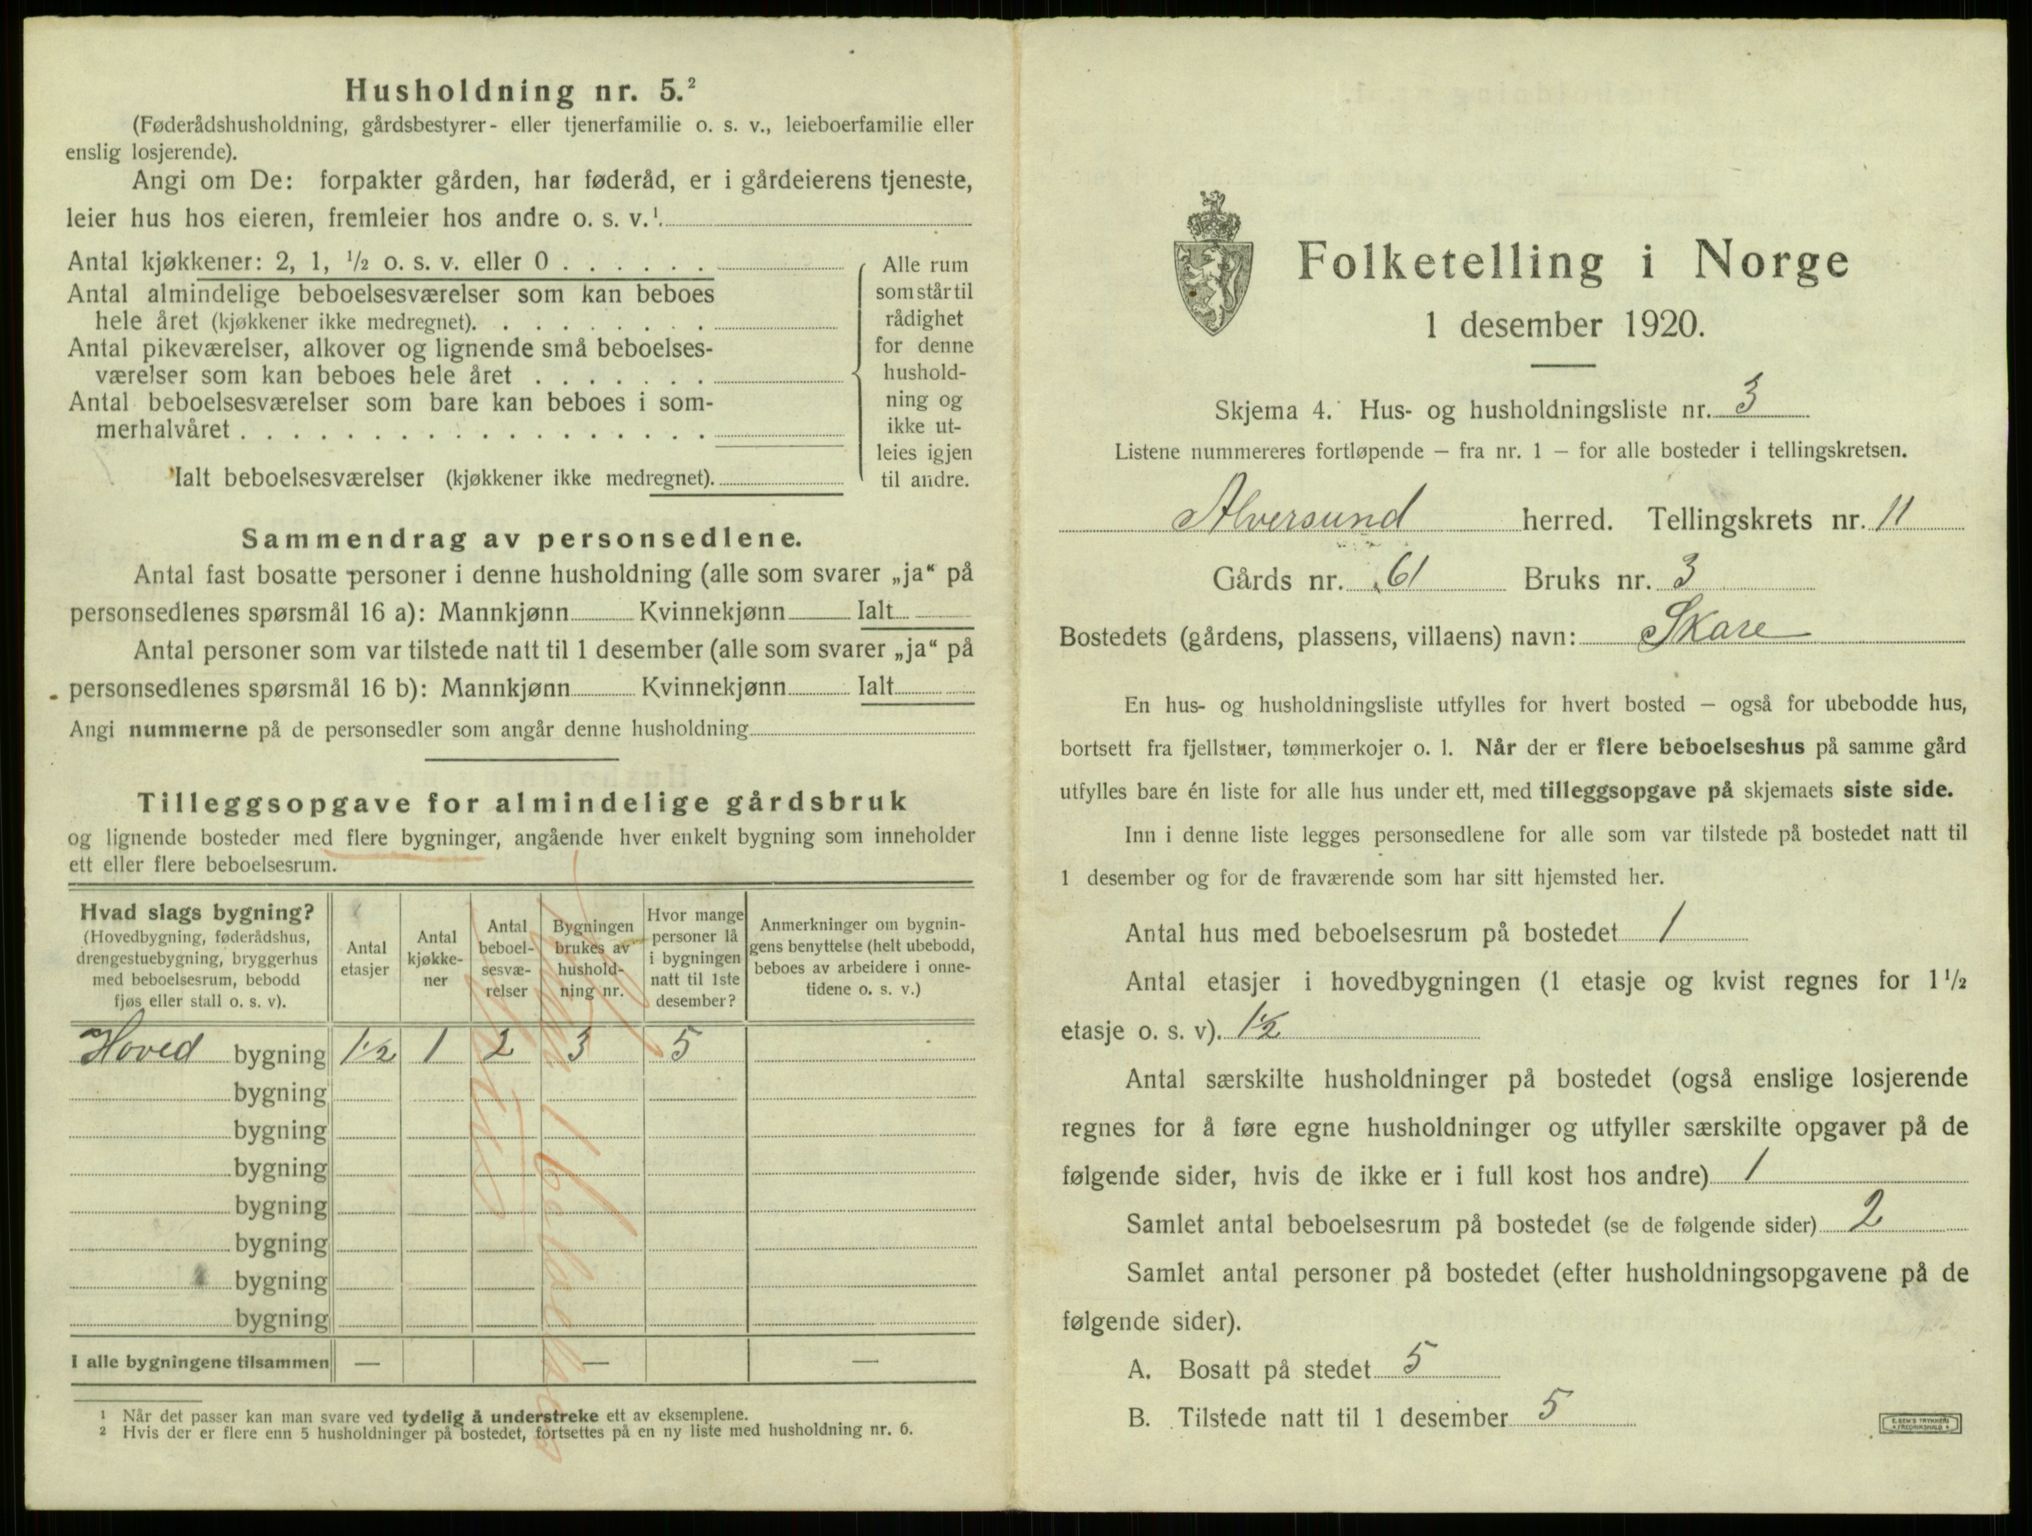 Husholdning nr. 5.²
(Føderådshusholdning, gårdsbestyrer- eller tjenerfamilie o. s. v., leieboerfamilie eller
enslig losjerende).
Angi om De: forpakter gården, har føderåd, er i gårdeierens tjeneste,
leier hus hos eieren, fremleier hos andre o. s. v.¹
Antal kjøkkener: 2, 1, ½ o. s. v. eller 0
Antal almindelige beboelsesværelser som kan beboes
hele året (kjøkkener ikke medregnet).
Antal pikeværelser, alkover og lignende små beboelses-
værelser som kan beboes hele året
Antal beboelsesværelser som bare kan beboes i som-
merhalvåret
Ialt beboelsesværelser (kjøkkener ikke medregnet).
Alle rum
som står til
rådighet
for denne
hushold-
ning og
ikke ut-
leies igjen
til andre.
Sammendrag av personsedlene.
Antal fast bosatte personer i denne husholdning (alle som svarer „ja“ på
personsedlenes spørsmål 16 a): Mannkjønn Kvinnekjønn Ialt
Antal personer som var tilstede natt til 1 desember (alle som svarer „ja“ på
personsedlenes spørsmål 16 b): Mannkjønn Kvinnekjønn Ialt
Angi nummerne på de personsedler som angår denne husholdning
Tilleggsopgave for almindelige gårdsbruk
og lignende bosteder med flere bygninger, angående hver enkelt bygning som inneholder
ett eller flere beboelsesrum.
Hvad slags bygning?
(Hovedbygning, føderådshus,
drengestuebygning, bryggerhus
med beboelsesrum, bebodd
fjøs eller stall o. s. v).
Antal
etasjer
Antal
kjøkke-
ner
Antal
beboel-
sesvæ-
relser
Bygningen
brukes av
hushold-
ning nr.
Hvor mange
personer lå
i bygningen
natt til 1ste
desember?
Anmerkninger om bygnin-
gens benyttelse (helt ubebodd,
beboes av arbeidere i onne-
tidene o. s. v.)
Hoved bygning 1½ 1 2 3 5
bygning
bygning
bygning
bygning
bygning
bygning
bygning
I alle bygningene tilsammen — — —
¹ Når det passer kan man svare ved tydelig å understreke ett av eksemplene.
² Hvis der er flere enn 5 husholdninger på bostedet, fortsettes på en ny liste med husholdning nr. 6.
Folketelling i Norge
1 desember 1920.
Skjema 4. Hus- og husholdningsliste nr. 3
Listene nummereres fortløpende — fra nr. 1 — for alle bosteder i tellingskretsen.
Alversund herred. Tellingskrets nr. 11
Gårds nr. 61 Bruks nr. 3
Bostedets (gårdens, plassens, villaens) navn: Skare
En hus- og husholdningsliste utfylles for hvert bosted — også for ubebodde hus,
bortsett fra fjellstuer, tømmerkojer o. l. Når der er flere beboelseshus på samme gård
utfylles bare én liste for alle hus under ett, med tilleggsopgave på skjemaets siste side.
Inn i denne liste legges personsedlene for alle som var tilstede på bostedet natt til
1 desember og for de fraværende som har sitt hjemsted her.
Antal hus med beboelsesrum på bostedet 1
Antal etasjer i hovedbygningen (1 etasje og kvist regnes for 1½
etasje o. s. v). 1½
Antal særskilte husholdninger på bostedet (også enslige losjerende
regnes for å føre egne husholdninger og utfyller særskilte opgaver på de
følgende sider, hvis de ikke er i full kost hos andre) 1
Samlet antal beboelsesrum på bostedet (se de følgende sider) 2
Samlet antal personer på bostedet (efter husholdningsopgavene på de
følgende sider).
A. Bosatt på stedet 5
B. Tilstede natt til 1 desember 5